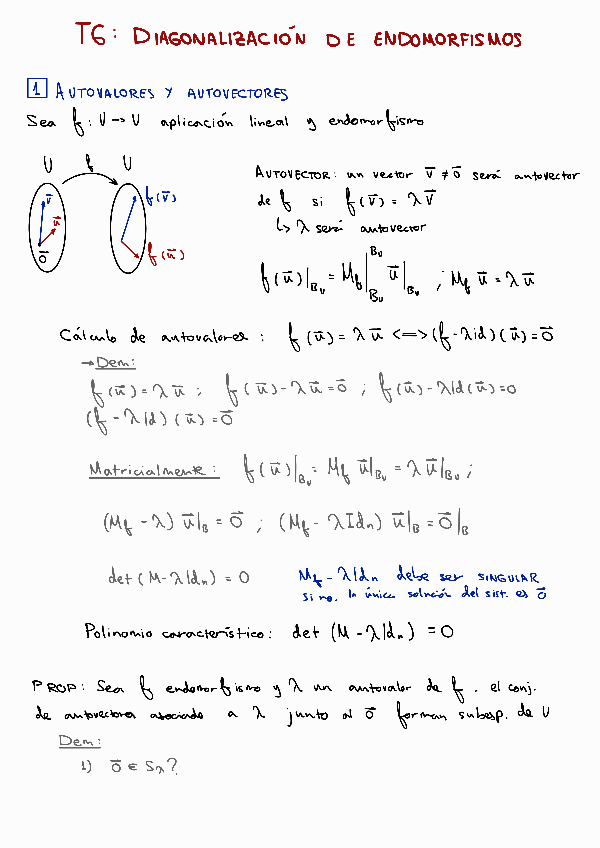 T6: DIAGONALIZACIÓN DE ENDOMORFISMOS
1 AUTOVALORES Y AUTOVECTORES
Sea f: U → U aplicación lineal y endomorfismo
U f U
v⃗ u⃗ 0⃗ f(v⃗) f(u⃗)
AUTOVECTOR: un vector v⃗ ≠ 0⃗ será autovector
de f si f(v⃗) = λv⃗
↳ λ será autovector
f(u⃗)|_Bᵤ = M_f|_Bᵤ^Bᵤ u⃗|_Bᵤ ; M_f u⃗ = λu⃗
Cálculo de autovalores: f(u⃗) = λu⃗ <=> (f-λid)(u⃗) = 0⃗
→ Dem:
f(u⃗) = λu⃗ ; f(u⃗) - λu⃗ = 0⃗ ; f(u⃗) - λId(u⃗) = 0
(f - λId)(u⃗) = 0⃗
Matricialmente: f(u⃗)|_Bᵤ = M_f u⃗|_Bᵤ = λu⃗|_Bᵤ ;
(M_f - λ) u⃗|_B = 0⃗ ; (M_f - λId_n) u⃗|_B = 0⃗|_B
det(M-λId_n) = 0
M_f - λId_n debe ser SINGULAR
si no, la única solución del sist. es 0⃗
Polinomio característico: det (M-λId_n) = 0
PROP: Sea f endomorfismo y λ un autovalor de f. el conj.
de autovectores asociado a λ junto al 0⃗ forman subesp. de U
Dem:
1) 0⃗ ∈ S_λ?